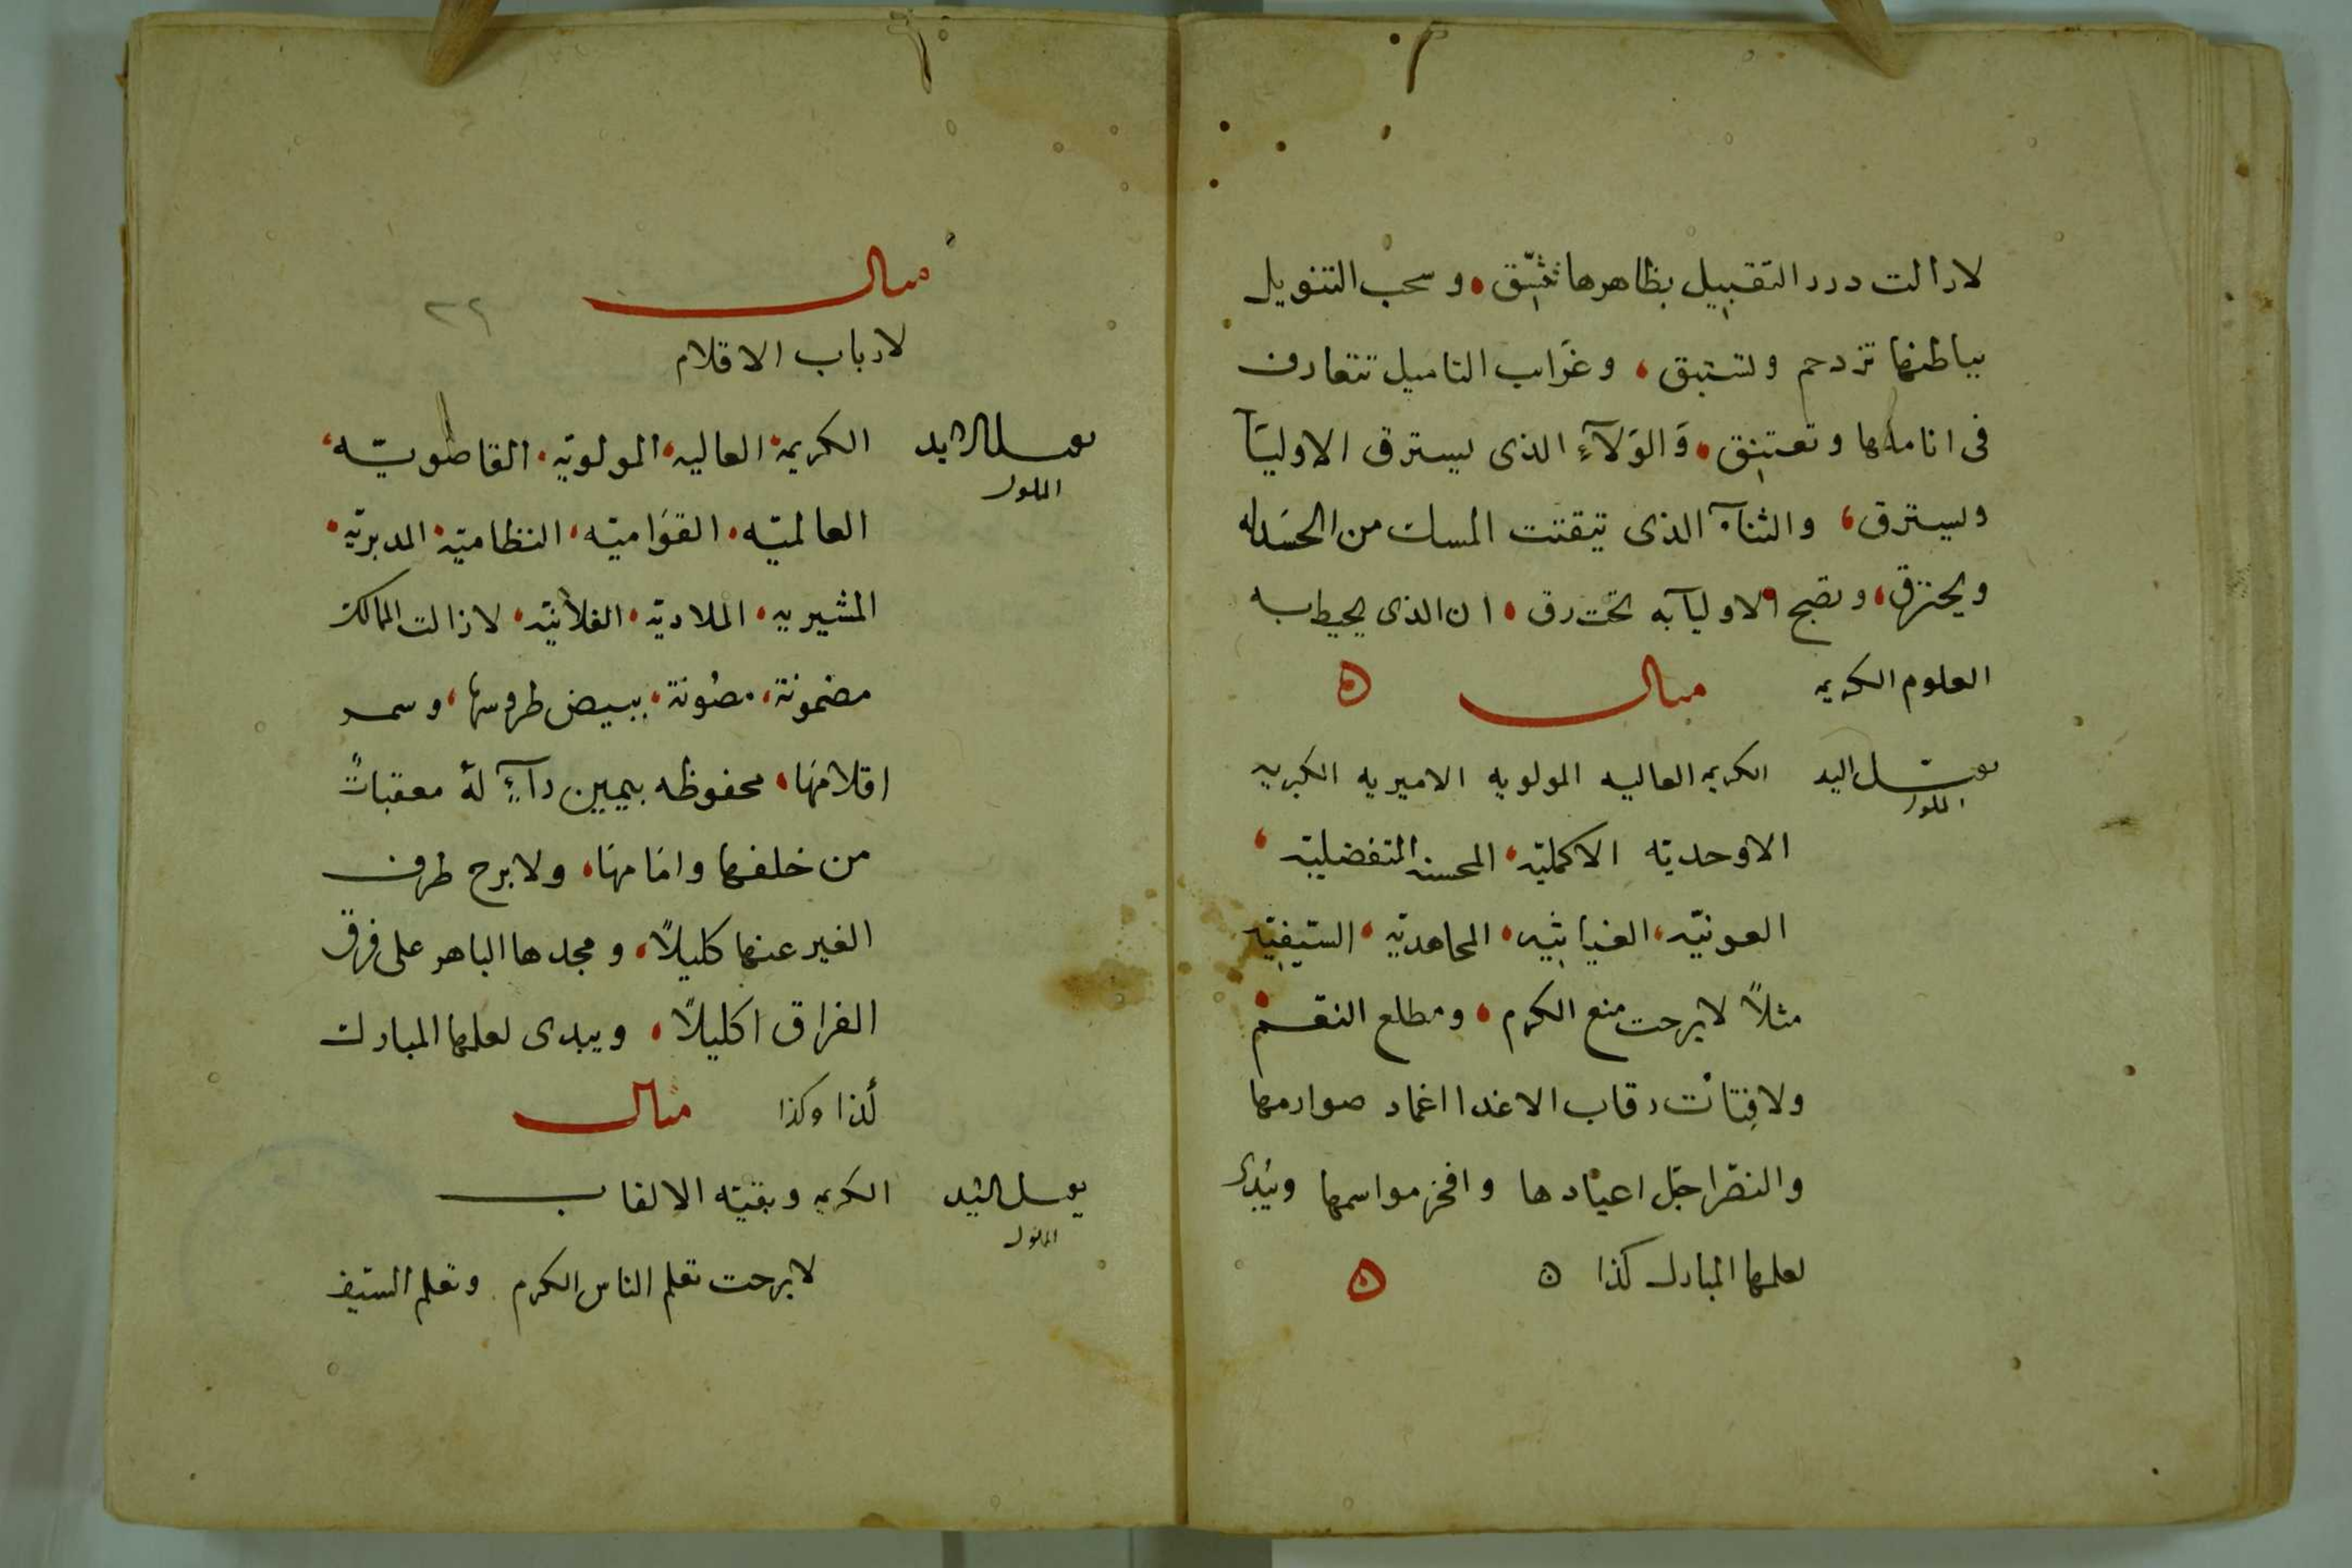 لازالت درر التقبيل بظاهرها تثيّق ، وسحب التنويل
بباطنها تزدحم وتستبق ، وغرايب التاميل تتعارف
فى اناملها وتعتنق ، وَالوَلآءِ الذى يسترق الاوليَآ
ويسترق ، والثنآء الذى تيقتت المسك من الحسَد له
ويحترق ، وتصبح الاوليآ به تحت رق ، ان الذى يحيط به
العلوم الكريمه مثال ه
يقبّل اليد الكريمه العاليه المولويه الاميريه الكبيريه
المملوك
الاوحديّه الاكمليّه ، المحسنه المتفضليّه ،
العونيّه ، الغياثيّه ، المجاهديّه ، السّيفيّه
مثلاً لا برحت منبع الكرم ، ومطلع النقم
ولا فتأت رقاب الاعدا اغماد صوارمها
والنصّر اجلّ اعيادها وافخر مواسمها ويُبدى
لعلمها المبارك كذا ه ه
مثال
٢٢
لارباب الاقلام
يقبل اليد الكريمة ، العاليه ، المولويّه ، القاطويّه ،
المملوك
العالميّه ، القوَاميّه ، النظاميّه ، المدبريّه ،
المشيريه ، الملاديّه ، الفلانيّه ، لا زالت الممالك
مضمونة ، مصُونة ، ببيض طروسها ، وسمر
اقلامهَا ، محفوظه بيمين رآءٍ لهُ معقباتٌ
من خلفها وامَامهَا ، ولا برح طرف
الغير عنها كليلاً ، ومجدها الباهر على فرق
الفراق اكليلاً ، ويبدى لعلمها المبارك
كذا وكذا مثال
يقبل اليد الكريمه وبقيّه الالقاب
المملوك
لا برحت تعلم الناس الكرم وتعلم السّيف